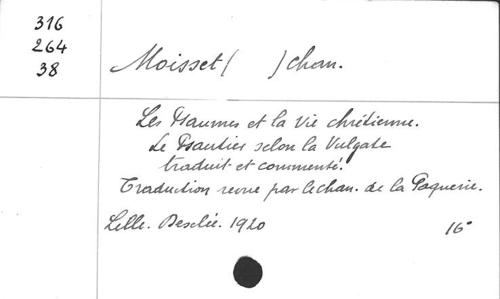 316
264
38
Moisset ( ) chan.
Les Psaumes et la vie chrétienne.
Le Psautier selon la Vulgate
traduit et commenté.
Traduction revue par le chan. de la Paquerie.
Lille. Desclée. 1920
16°